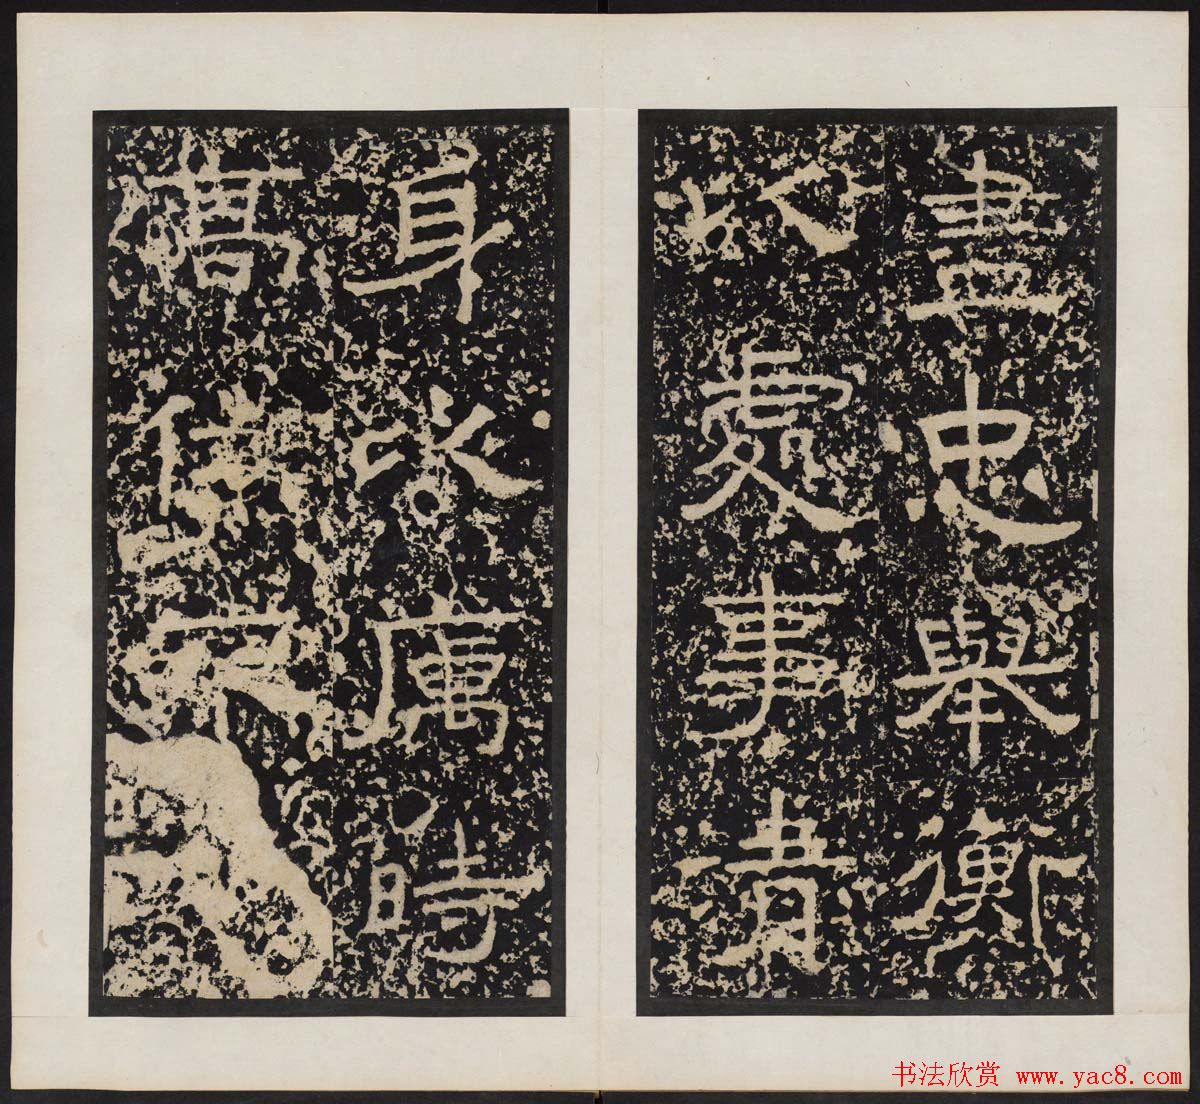 盡忠舉衡
以處事清
身以厲時
高
书法欣赏 www.yac8.com